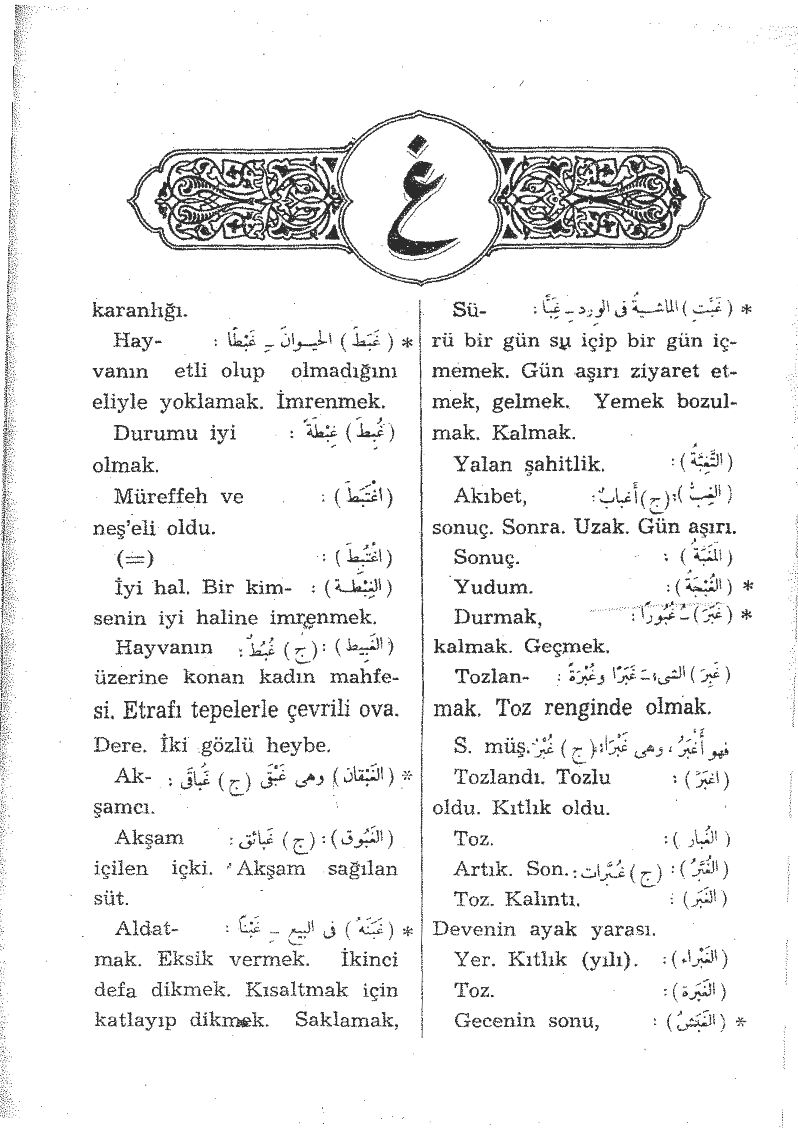 غ
* (غَبَّتِ) الماشيةُ فى الورد ـ غَبًّا : Sü-
rü bir gün su içip bir gün iç-
memek. Gün aşırı ziyaret et-
mek, gelmek. Yemek bozul-
mak. Kalmak.
(التَّغِبَّةُ) : Yalan şahitlik.
(الغِبُّ) : (ج) أغباب : Akıbet,
sonuç. Sonra. Uzak. Gün aşırı.
(المَغَبَّةُ) : Sonuç.
* (الغُبْجَةُ) : Yudum.
* (غَبَرَ) ـُ غُبُورًا : Durmak,
kalmak. Geçmek.
(غَبِرَ) الشىء ـَ غَبَرًا وغُبْرَةً : Tozlan-
mak. Toz renginde olmak.
فهو أَغْبَرُ ، وهى غَبْرَاءُ : (ج) غُبْرٌ : S. müş.
(اغبَرَّ) : Tozlandı. Tozlu
oldu. Kıtlık oldu.
(الغُبار) : Toz.
(الغُبَّرُ) : (ج) غُبَّرات : Artık. Son.
(الغَبَرُ) : Toz. Kalıntı.
Devenin ayak yarası.
(الغَبْراء) : Yer. Kıtlık (yılı).
(الغَبَرة) : Toz.
* (الغَبَشُ) : Gecenin sonu,
karanlığı.
* (غَبَطَ) الحيوانَ ـِ غَبْطًا : Hay-
vanın etli olup olmadığını
eliyle yoklamak. İmrenmek.
(غُبِطَ) غِبْطَةً : Durumu iyi
olmak.
(اغْتَبَطَ) : Müreffeh ve
neş'eli oldu.
(اغْتُبِطَ) : (=)
(الغِبْطَة) : İyi hal. Bir kim-
senin iyi haline imrenmek.
(الغَبِيط) : (ج) غُبُطٌ : Hayvanın
üzerine konan kadın mahfe-
si. Etrafı tepelerle çevrili ova.
Dere. İki gözlü heybe.
* (الغَبْقان) وهى غَبْقَى (ج) غَبَاقَى : Ak-
şamcı.
(الغَبُوق) : (ج) غبائق : Akşam
içilen içki. Akşam sağılan
süt.
* (غَبَنَهُ) فى البيع ـِ غَبْنًا : Aldat-
mak. Eksik vermek. İkinci
defa dikmek. Kısaltmak için
katlayıp dikmek. Saklamak,